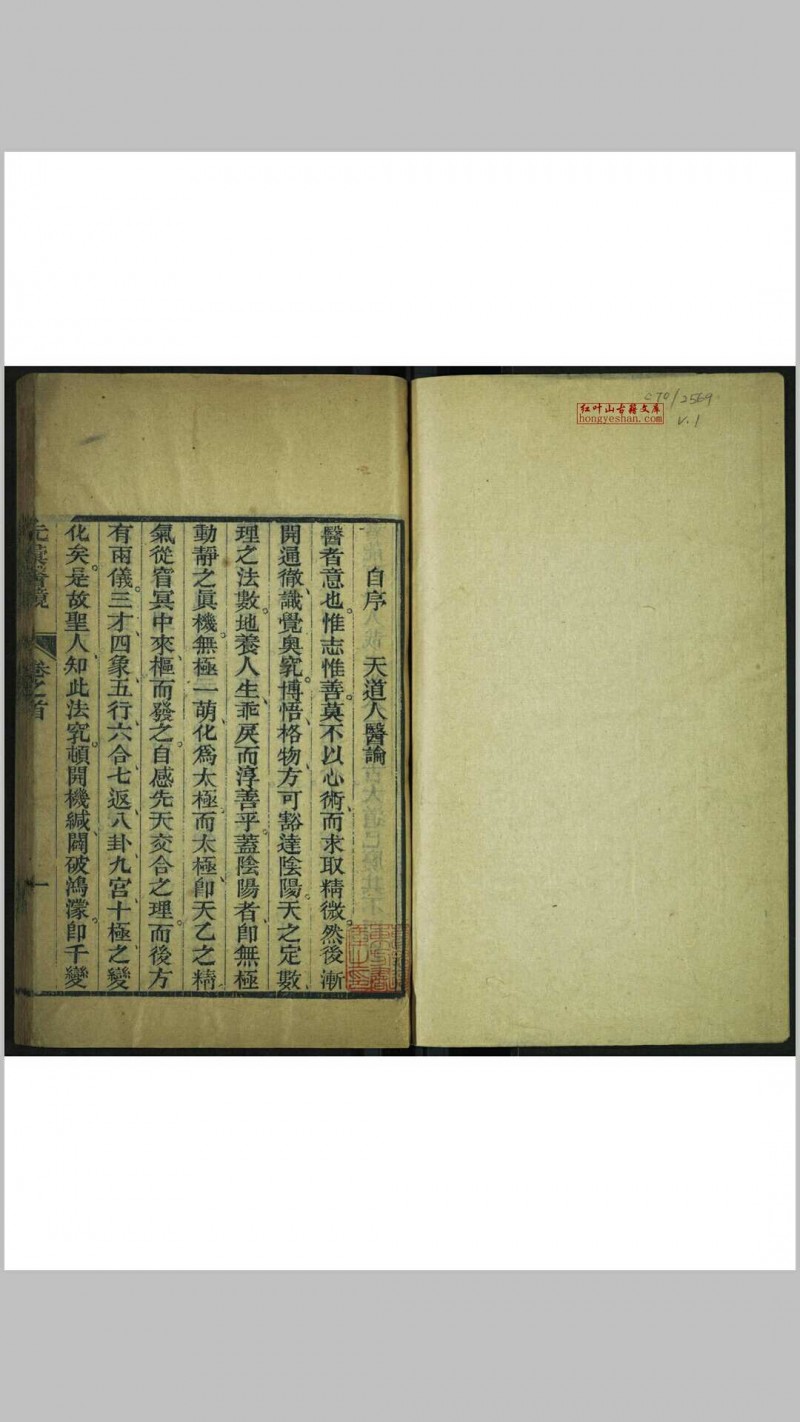 C70/2569
V.1
红叶山古籍文库
hongyeshan.com
自序　天道人醫論
醫者意也。惟志惟善。莫不以心術、而求取精微。然後漸
開通徹、識覺奧究。博悟、格物、方可豁達陰陽。天之定數、
理之法數。地養人生、乖戾而淳善乎。蓋陰陽者、卽無極
動靜之眞機。無極一萌、化爲太極。而太極、卽天乙之精
氣從窅冥中來、樞而發之。自感先天交合之理。而後方
有兩儀。三才、四象、五行、六合、七返、八卦、九宮、十極之變
化矣。是故聖人、知此法究。頓開機緘、闢破鴻濛。卽千變
元眞醫鏡　卷之首　一